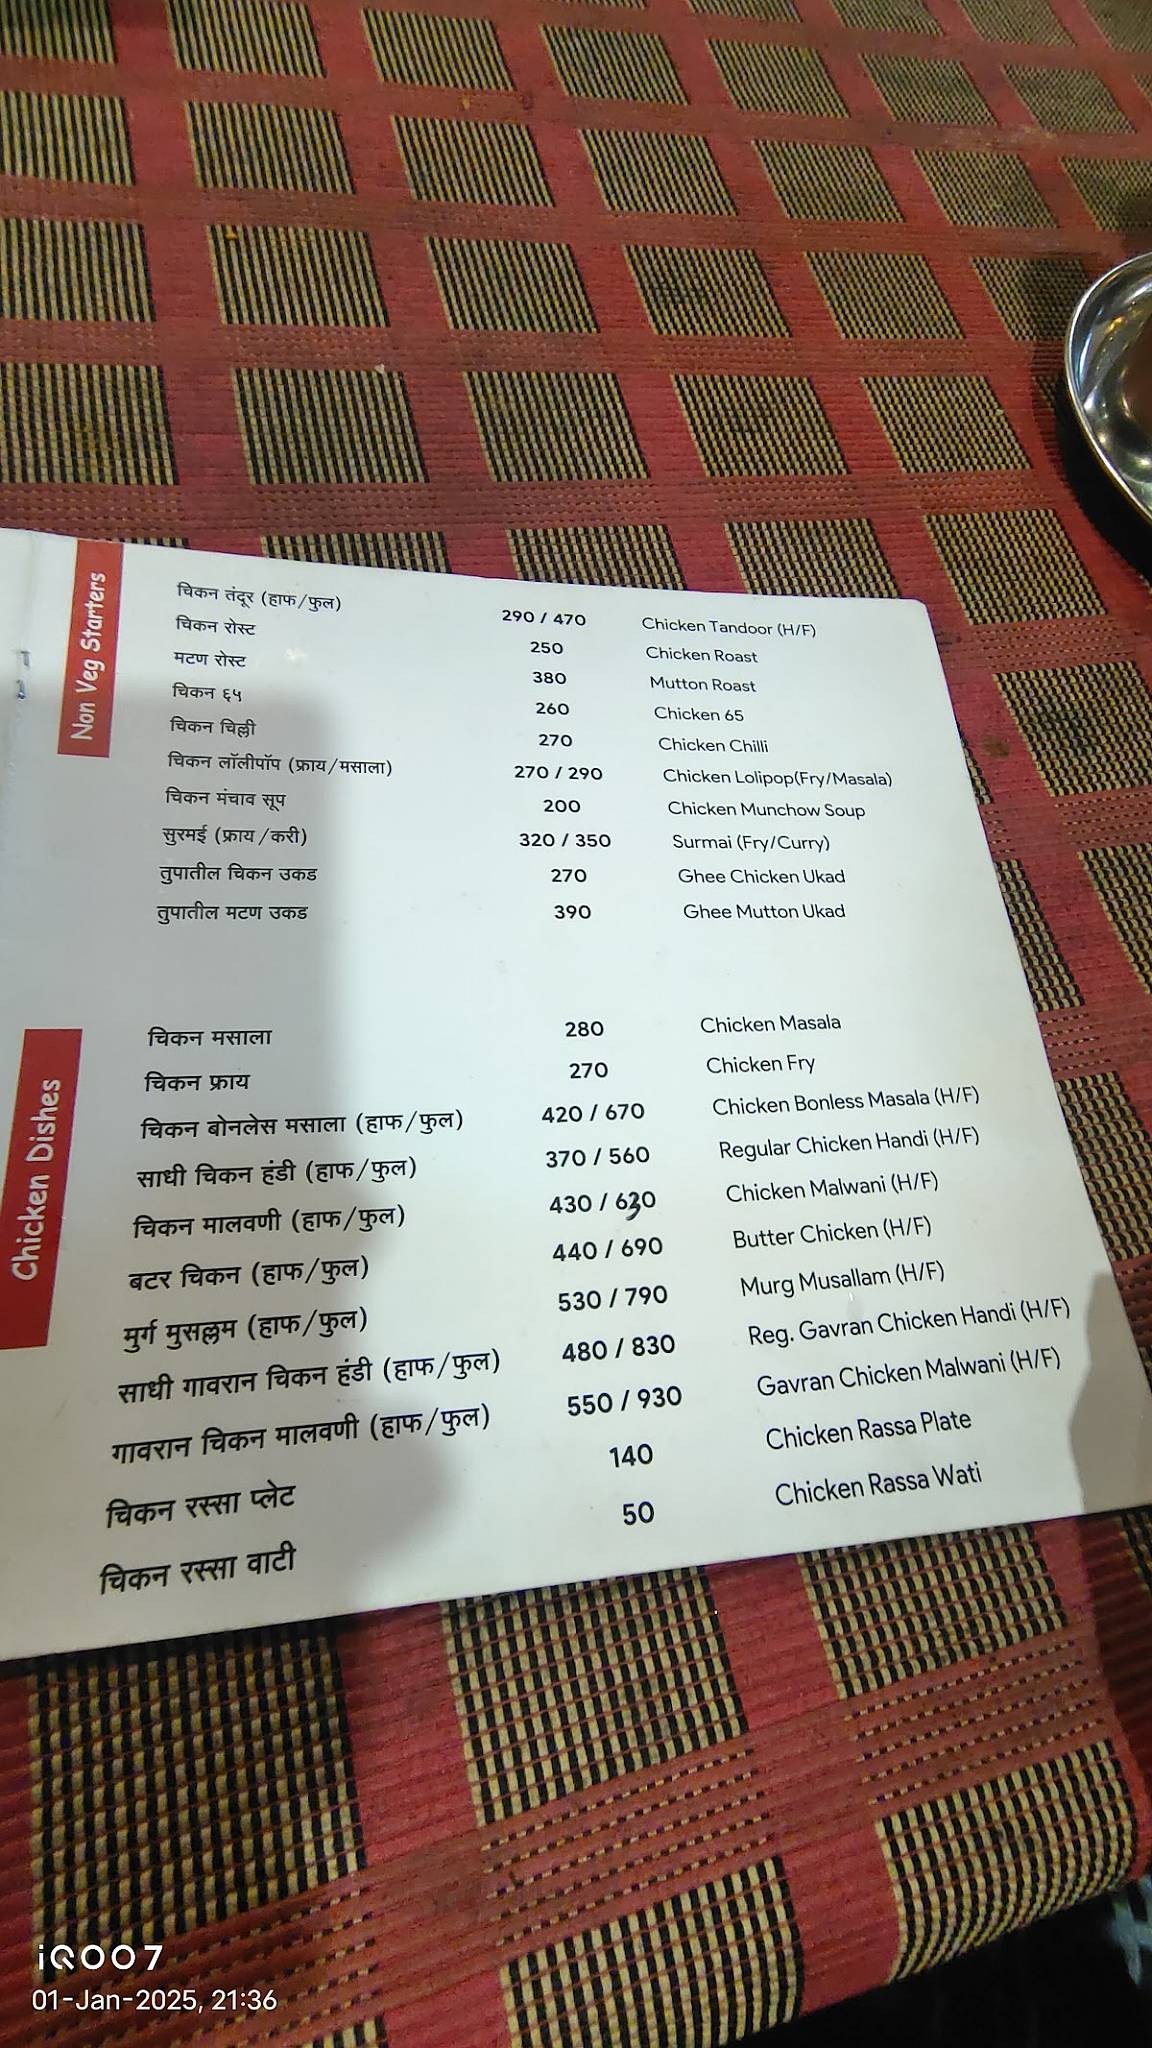 Non Veg Starters
चिकन तंदूर (हाफ/फुल) 290 / 470 Chicken Tandoor (H/F)
चिकन रोस्ट 250 Chicken Roast
मटण रोस्ट 380 Mutton Roast
चिकन ६५ 260 Chicken 65
चिकन चिल्ली 270 Chicken Chilli
चिकन लॉलीपॉप (फ्राय/मसाला) 270 / 290 Chicken Lolipop(Fry/Masala)
चिकन मंचाव सूप 200 Chicken Munchow Soup
सुरमई (फ्राय/करी) 320 / 350 Surmai (Fry/Curry)
तुपातील चिकन उकड 270 Ghee Chicken Ukad
तुपातील मटण उकड 390 Ghee Mutton Ukad
Chicken Dishes
चिकन मसाला 280 Chicken Masala
चिकन फ्राय 270 Chicken Fry
चिकन बोनलेस मसाला (हाफ/फुल) 420 / 670 Chicken Bonless Masala (H/F)
साधी चिकन हंडी (हाफ/फुल) 370 / 560 Regular Chicken Handi (H/F)
चिकन मालवणी (हाफ/फुल) 430 / 630 Chicken Malwani (H/F)
बटर चिकन (हाफ/फुल) 440 / 690 Butter Chicken (H/F)
मुर्ग मुसल्लम (हाफ/फुल) 530 / 790 Murg Musallam (H/F)
साधी गावरान चिकन हंडी (हाफ/फुल) 480 / 830 Reg. Gavran Chicken Handi (H/F)
गावरान चिकन मालवणी (हाफ/फुल) 550 / 930 Gavran Chicken Malwani (H/F)
चिकन रस्सा प्लेट 140 Chicken Rassa Plate
चिकन रस्सा वाटी 50 Chicken Rassa Wati
iQOO 7
01-Jan-2025, 21:36